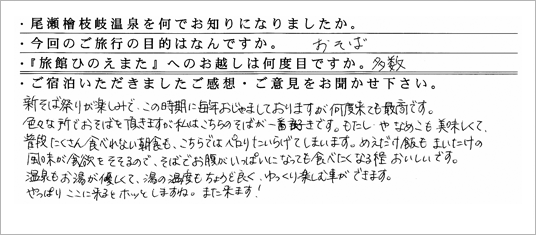 ・尾瀬檜枝岐温泉を何でお知りになりましたか。
・今回のご旅行の目的はなんですか。 おそば
・『旅館ひのえまた』へのお越しは何度目ですか。多数
・ご宿泊いただきましたご感想・ご意見をお聞かせ下さい。
新そば祭りが楽しみで、この時期に毎年おじゃましておりますが何度来ても最高です。
色々な所でおそばを頂きますが私はこちらのそばが一番好きです。もだし や なめこも 美味しくて、
普段たくさん食べれない朝食も、こちらではペロリたいらげてしまいます。めえだけ飯も まいたけの
風味が食欲をそそるので、そばでお腹がいっぱいになっても食べたくなる程 おいしいです。
温泉もお湯が優しくて、湯の温度もちょうど良く、ゆっくり楽しむ事ができます。
やっぱり ここに来るとホッと しますね。また来ます!